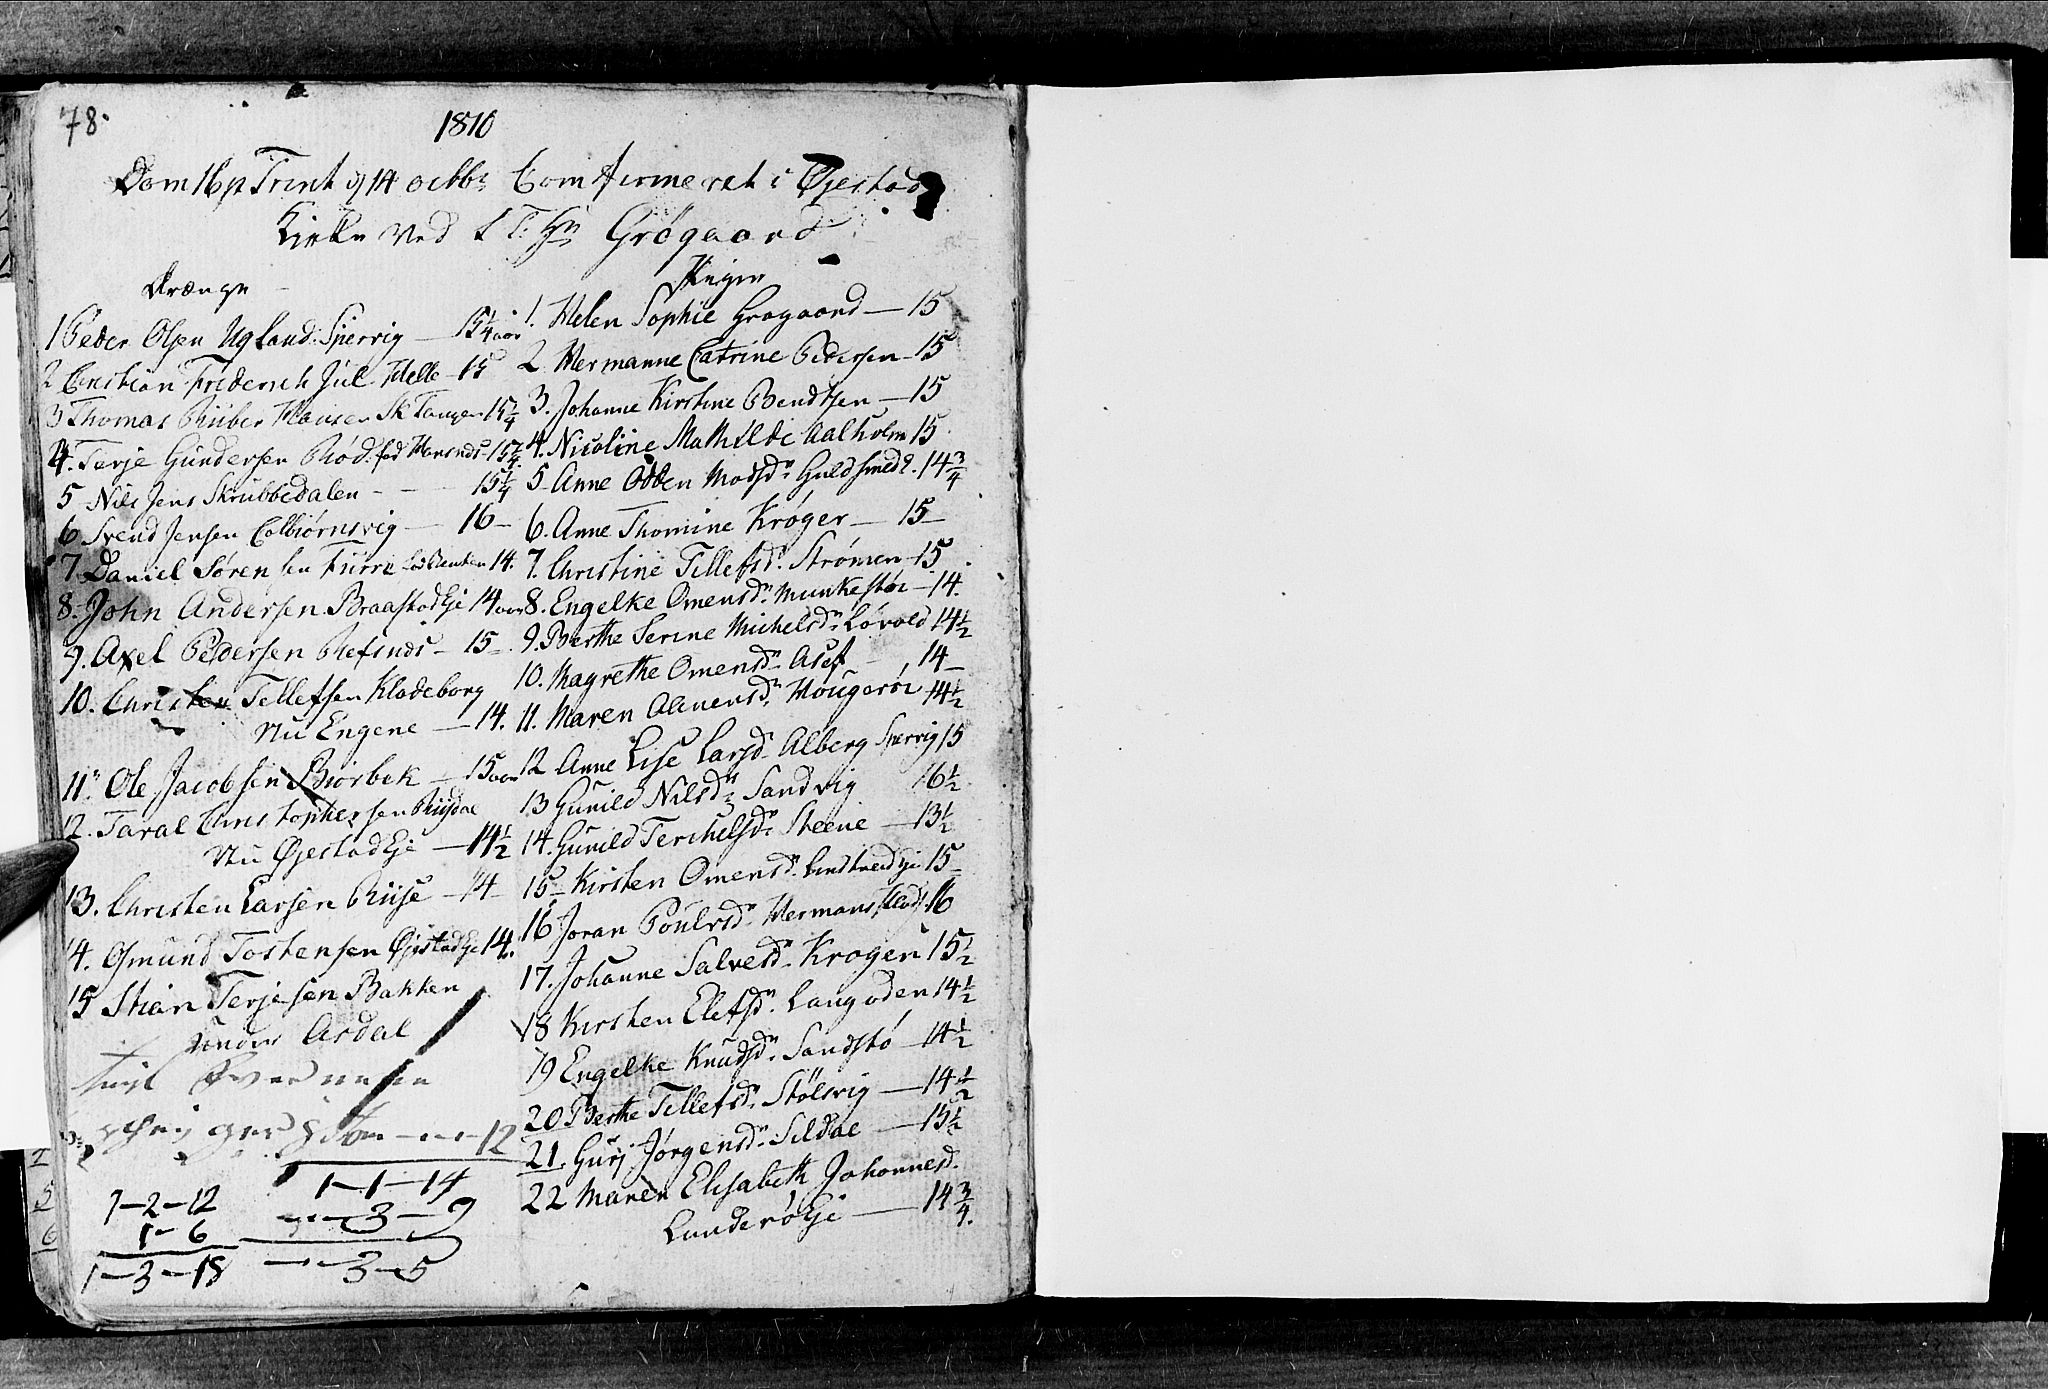 78.
1810
Dom 16 p Trinit og 14 octbr Comfirmeret i Øiestad
Kirke ved S T. Hr Grøgaard
Drænge
1 Peder Olsen Ugland Spervig — 15 1/4 aar
2 Christian Friderich Jul. Helle — 15
3 Thomas Riiber Hansen Sk Tangen 15 1/4
4. Terje Gundersen Röd. fød 15 1/4
5 Nils Jens Skrubbedalen - - - 15 1/4
6 Svend Jensen Colbiørnsvig — 16 —
7 Daniel Sørensen Furre 14.
8. John Andersen Braastad Eje 14 aar
9. Axel Pedersen Refsnes — 15 —
10. Christen Tellefsen Kladeborg
nu Engene — 14.
11. Ole Jacobsen Biorbek — 15 aar
12. Taral Christophersen Rusdal
nu Øjestad Eje — 14 1/2
13. Christen Larsen Riise — 14 —
14. Osmund Tostensen Øjestad Eje 14.
15 Stian Terjesen Bakken
under Asdal
12
1—1—14
1—2—12
—3—9
1—6
1—3—18
—3—5
Piger
1. Helen Sophie Grøgaard — 15
2. Hermanne Catrine Pedersen — 15
3. Johanne Kirstine Bendtsen — 15
4. Nicoline Mathilde Aalholm 15
5 Anne Odden Madsdr Guldsmed 14 3/4
6. Anne Thomine Krøger — 15 —
7. Christine Tellefsdr Strømen — 15
8. Engelke Omensdr Munkestøe — 14.
9. Berthe Serine Michelsdr Løvold 14 1/2
10. Magrethe Omensdr Asef — 14 —
11. Maren Alnensdr Hougerøe 14 1/2
12 Anne Lise Larsdr Alberg Spervig 15
13 Gunild Nilsdr Sandvig 16 1/2
14. Gunild Terchelsdr Steene — 13 1/2
15 — Kirsten Omensdr Lindtveid Eje 15 —
16 Joran Poulsdr Hermans 16
17. Johanne Salvesdr Krogen 15 1/2
18 Kirsten Elefsdr Langoden 14 1/2
19 Engelke Knudsdr Sandstø — 14 1/2
20 Berthe Tellefsdr Stølsvig — 14 1/2
21. Guri Jørgensdr Sildal — 15 1/2
22 Maren Elisabeth Johannesd.
Lunderø Eje — 14 3/4.